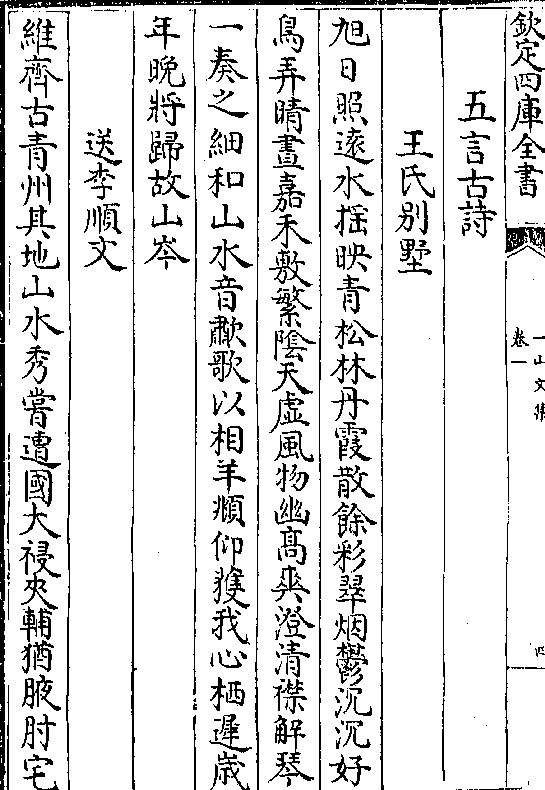 欽定四庫全書
一山文集
卷一
四
五言古詩
王氏别墅
旭日照遠水揺映青松林丹霞散餘彩翠烟鬱沉沉好
鳥弄晴晝嘉禾敷繁隂天虛風物幽髙爽澄清襟解琴
一奏之細和山水音歗歌以相羊頫仰獲我心栖遲嵗
年晩將歸故山岑
送李順文
維齊古青州其地山水秀嘗遭國大祲夾輔猶腋肘宅